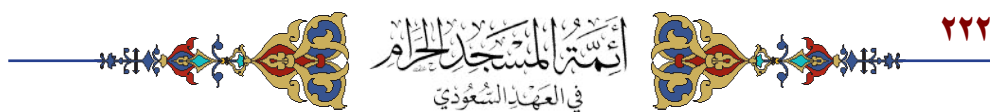 ٢٢٢
أئمة المسجد الحرام
في العهد السعودي